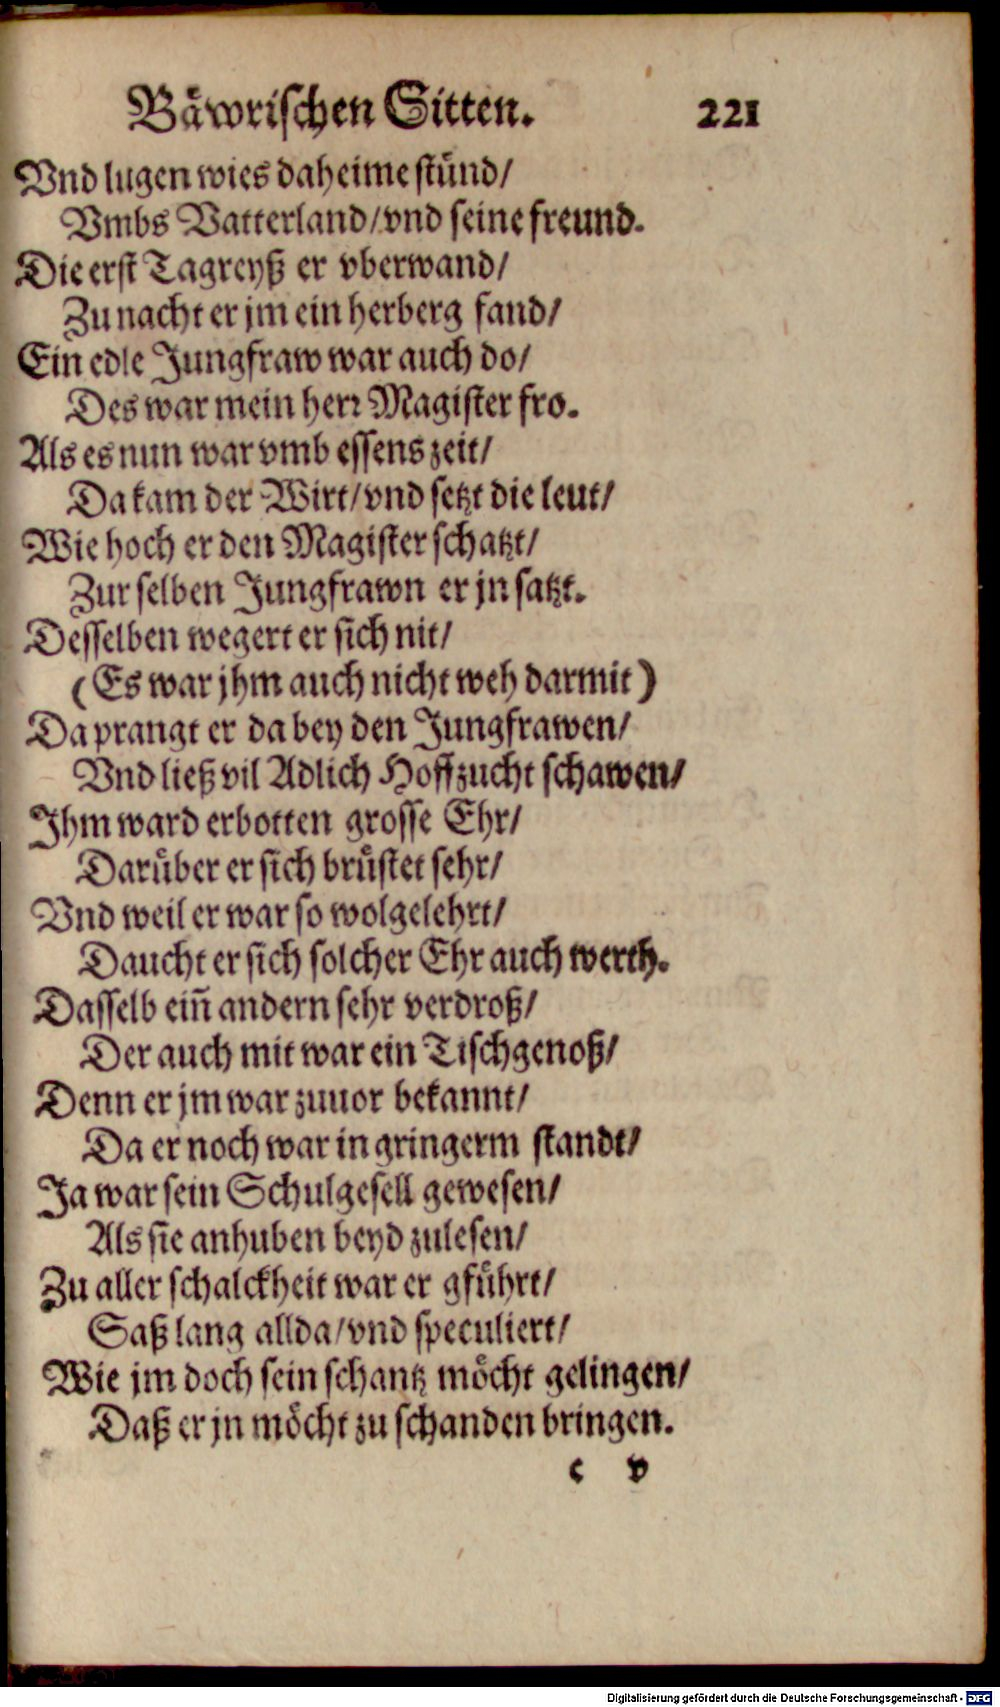 Bäwrischen Sitten. 221
Vnd lugen wies daheime stünd/
Vmbs Vatterland/vnd seine freund.
Die erst Tagreyß er vberwand/
Zu nacht er jm ein herberg fand/
Ein edle Jungfraw war auch do/
Des war mein herr Magister fro.
Als es nun war vmb essens zeit/
Da kam der Wirt/vnd setzt die leut/
Wie hoch er den Magister schatzt/
Zur selben Jungfrawn er jn satzt.
Desselben wegert er sich nit/
(Es war jhm auch nicht weh darmit)
Da prangt er da bey den Jungfrawen/
Vnd ließ vil Adlich Hoffzucht schawen/
Ihm ward erbotten grosse Ehr/
Darüber er sich brüstet sehr/
Vnd weil er war so wolgelehrt/
Daucht er sich solcher Ehr auch werth.
Dasselb eiñ andern sehr verdroß/
Der auch mit war ein Tischgenoß/
Denn er jm war zuuor bekannt/
Da er noch war in gringerm standt/
Ja war sein Schulgesell gewesen/
Als sie anhuben beyd zulesen/
Zu aller schalckheit war er gführt/
Saß lang allda/vnd speculiert/
Wie jm doch sein schantz möcht gelingen/
Daß er jn möcht zu schanden bringen.
c v
Digitalisierung gefördert durch die Deutsche Forschungsgemeinschaft - DFG